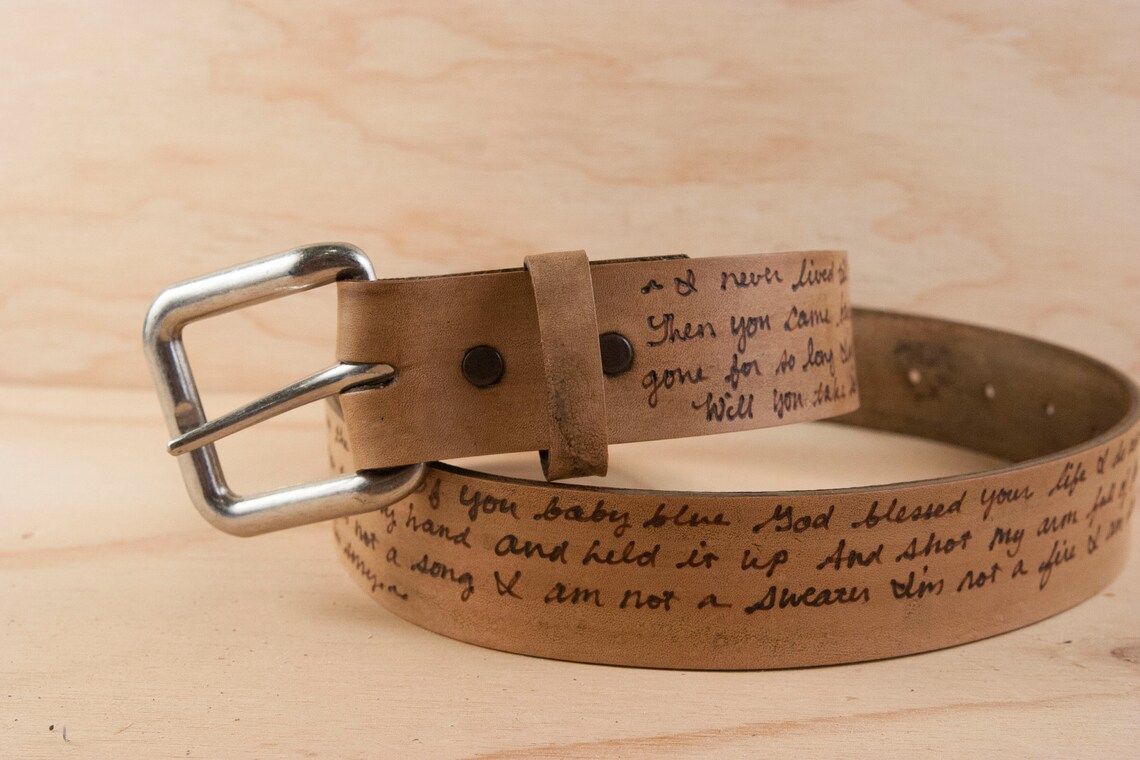 I never lived
Then you came
gone for so long
Will you take
the
If you baby blue God blessed your life I do
my hand and held it up And shot my arm full of
not a song I am not a sweater I'm not a fire I am
song.